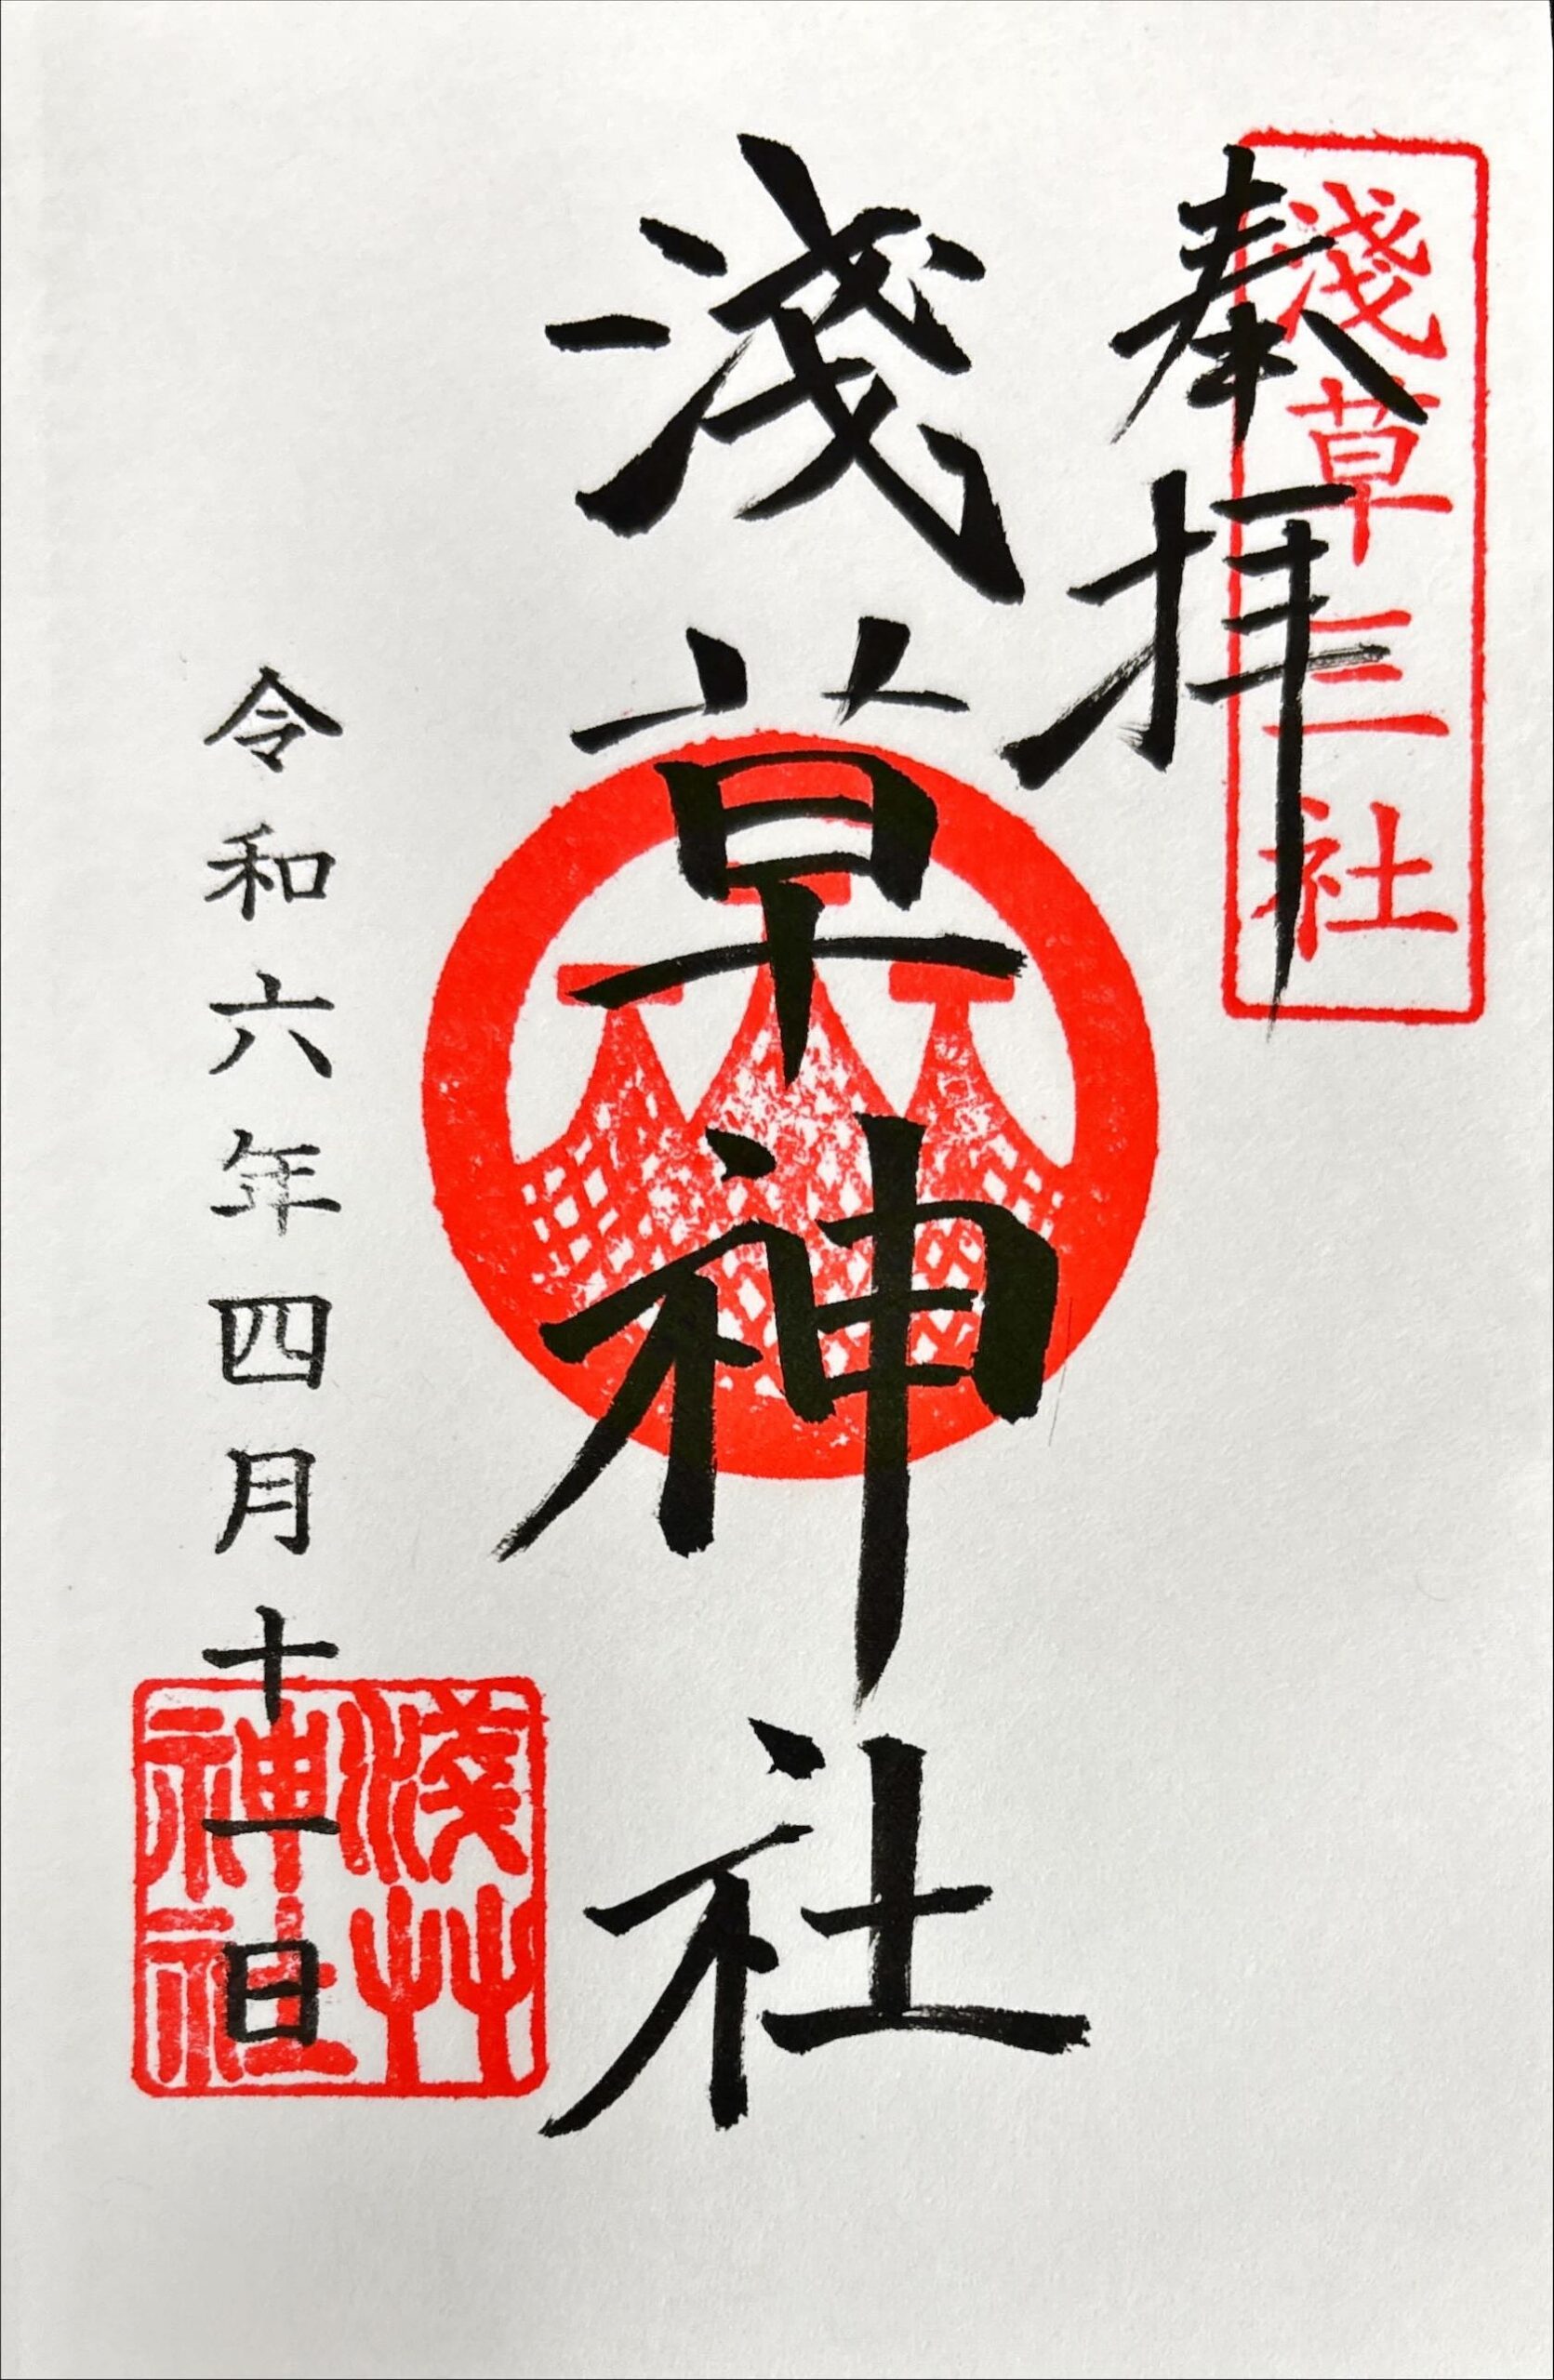 淺草三社
奉拝
淺草神社
令和六年四月十一日
淺艸
神社